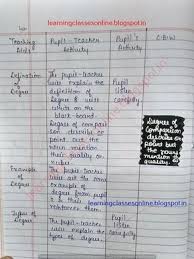 learningclassesonline.blogspot.in
Teaching Aids
Pupil-Teacher Activity
Pupil's Activity
C.B.W
Definition of Degree
The pupil-teacher will explain the definition of Degree & will write on the black-board.
Degree of comparison describe or point out the noun mention their quality or
Pupil listen carefully
Degree of Comparison describe or point out the noun mention quality.
Example of Degree
The pupil-teacher will ask the same example of degree from pupil & their reinforcer them.
learningclassesonline.blogspot.in
Types of Degree
The pupil-teacher will explain the types of degree.
Pupil listen carefully